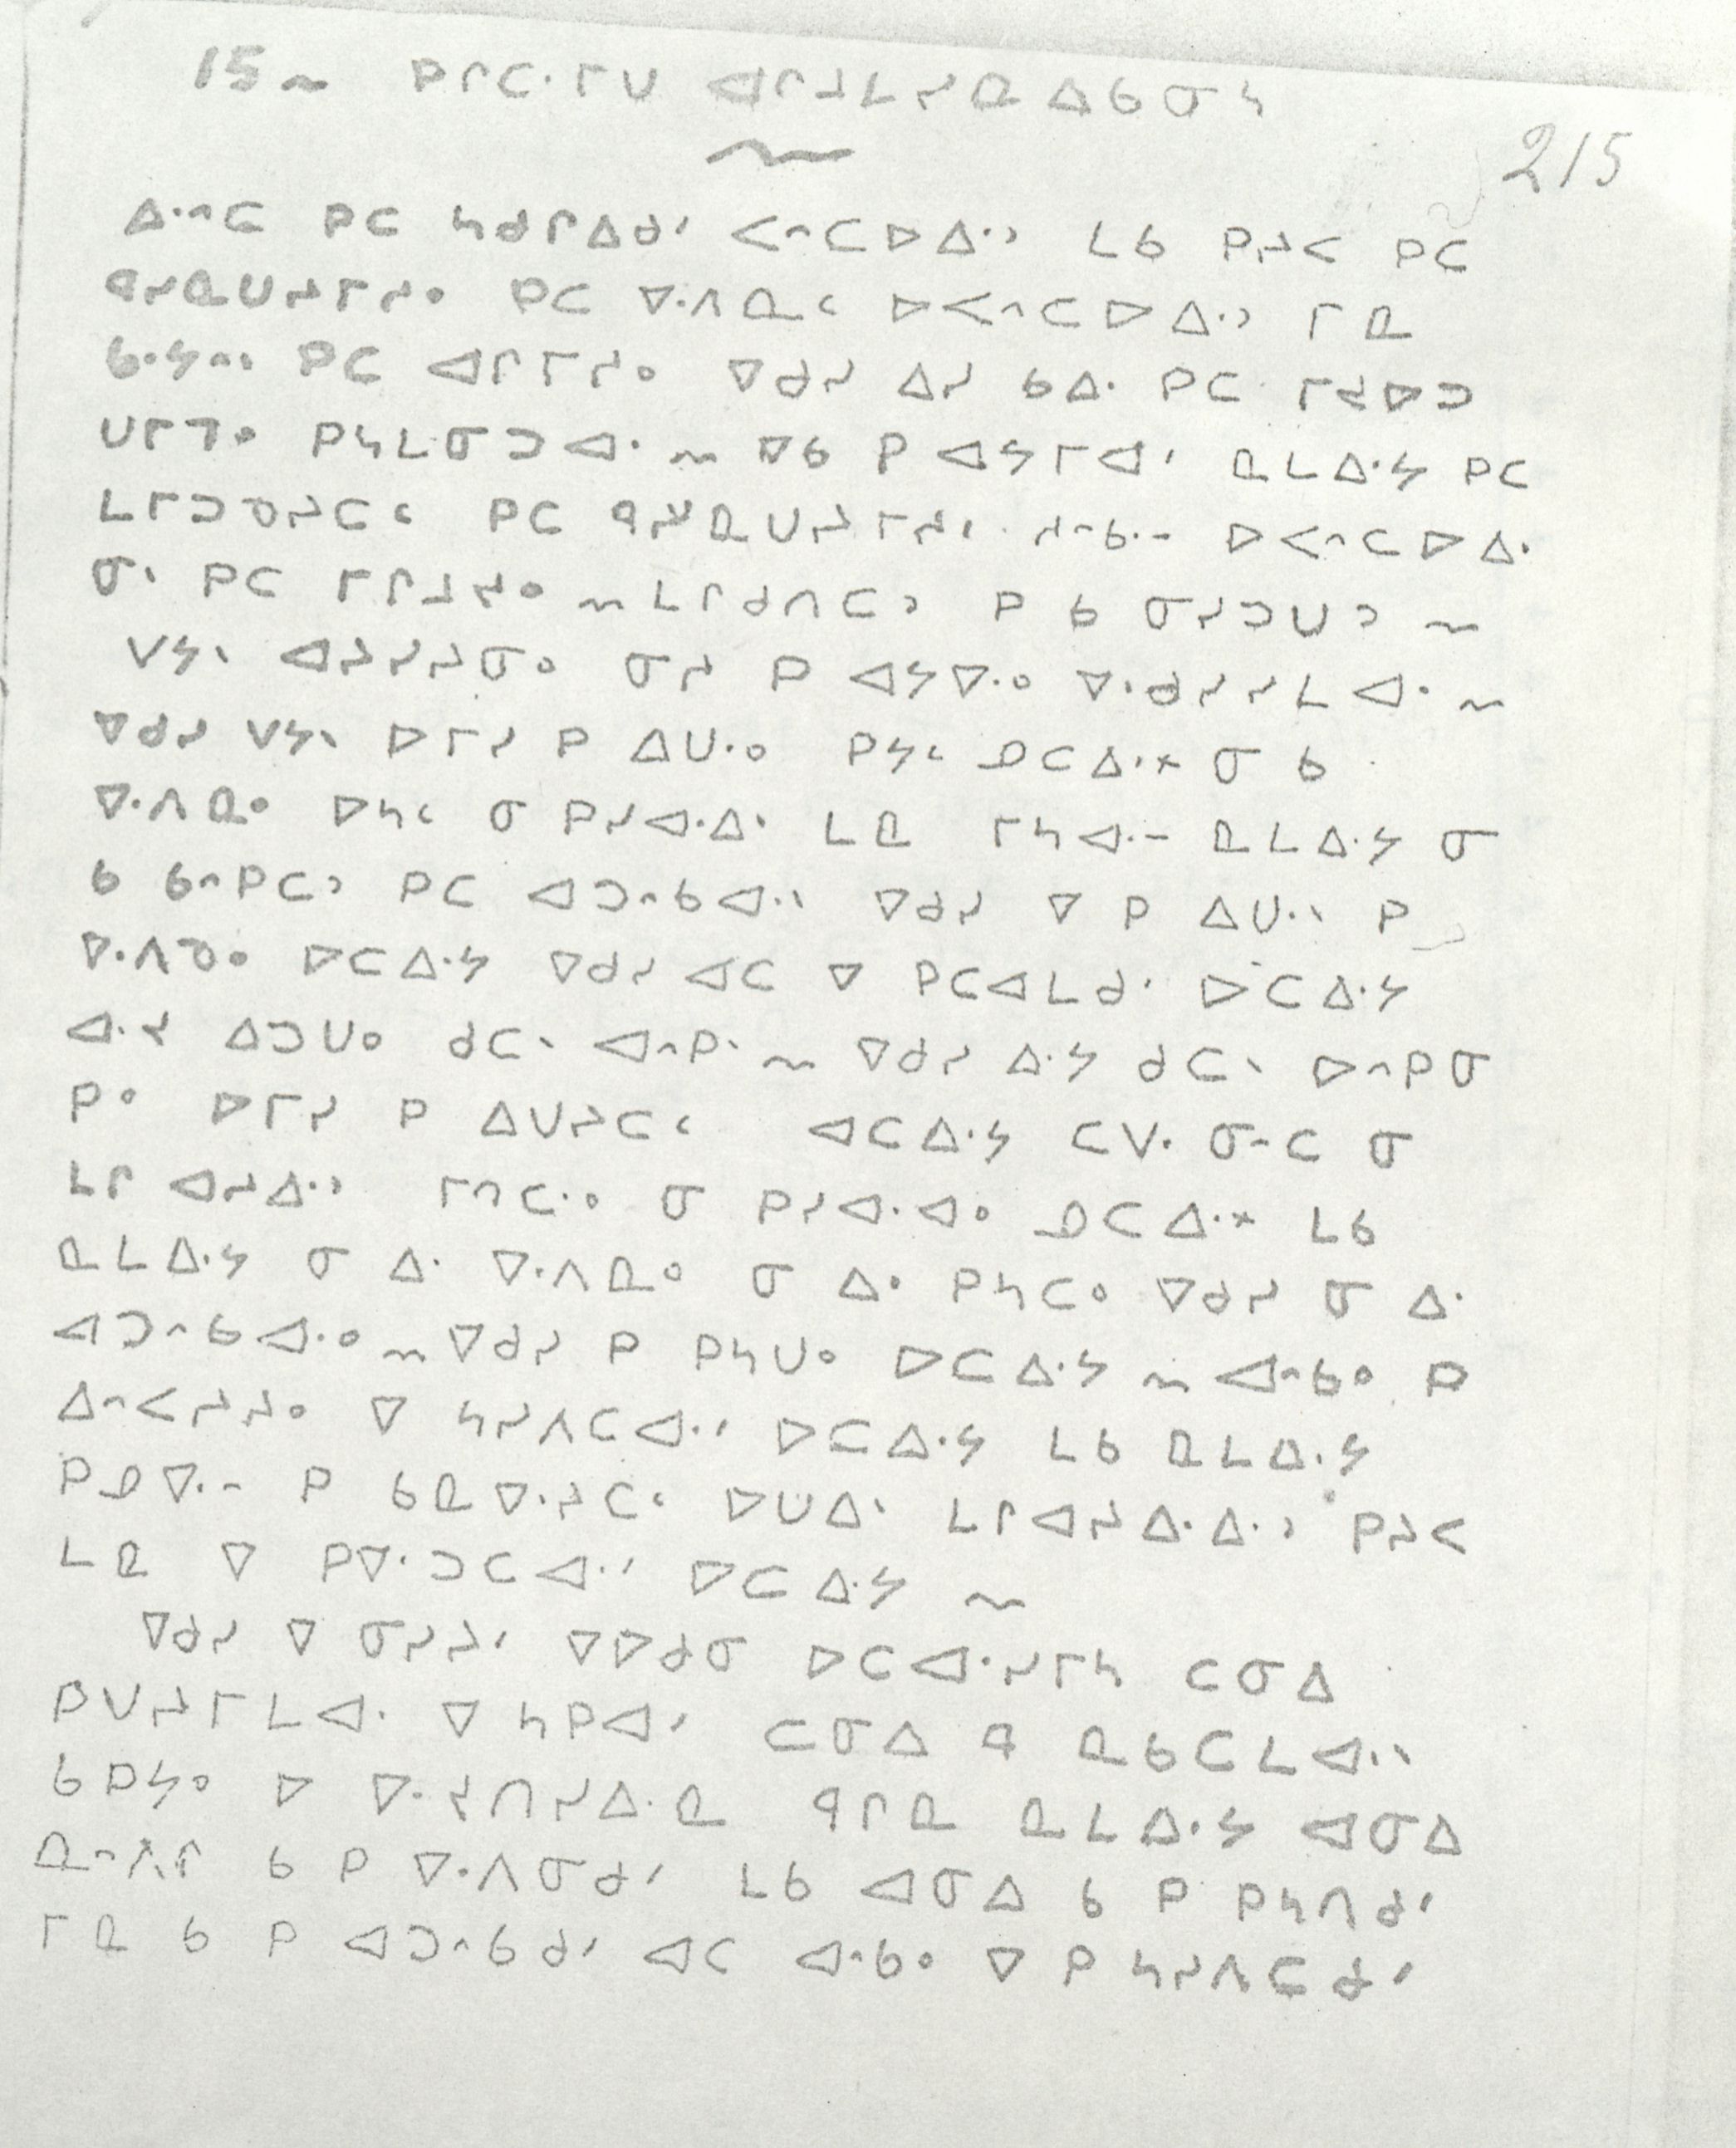 15~ ᑭᒋᑕᐧᒥᑌ ᐊᒋᒧᒪᓯᓇ ᐃᑲᓂᓴ
215
ᐃᐧᐢᑕ ᑭᑕ ᓴᑯᒋᐃᑯᐟ ᐸᐢᑕᐅᐃᐧᐣ ᒪᑲ ᑭᓱᐸ ᑭᑕ
ᑫᓯᓇᑌᓱᒥᓱᐤ ᑭᑕ ᐁᐧᐱᓇᑦ ᐅᐸᐢᑕᐅᐃᐧᐣ ᒥᓇ
ᑲᐧᔭᐢᐠ ᑭᑕ ᐊᒋᒥᓱᐤ ᐁᑯᓯ ᐃᓯ ᑲᐃᐧ ᑭᑕ ᒥᔪᐅᑐ
ᑌᒥᒣᐤ ᑭᓴᒪᓂᑐᐊᐧ ~ ᐁᑲ ᑭ ᐊᔭᒥᐊᐟ ᓇᒪᐃᐧᔭ ᑭᑕ
ᒪᒥᑐᓀᓱᑕᑦ ᑭᑕ ᑫᓯᓇᑌᓱᒥᓱᐟ ᓱᐢᑲᐧᐨ ᐅᐸᐢᑕᐅᐃᐧ
ᓂᐠ ᑭᑕ ᒥᒋᒧᓯᐤ ~ ᒪᒋᑯᑎᑕᐣ ᑭ ᑲ ᓂᓯᑐᑌᐣ ~
ᐯᔭᐠ ᐊᓱᓯᓱᓂᐤ ᓂᓱ ᑭ ᐊᔭᐁᐧᐤ ᐁᐧᑯᓯᓯᒪᐊᐧ ~
ᐁᑯᓯ ᐯᔭᐠ ᐅᒥᓯ ᑭ ᐃᑌᐧᐤ ᑭᔭᑦ ᓄᑕᐃᐧᕽ ᓂ ᑲ
ᐁᐧᐱᓇᐤ ᐅᓴᑦ ᓂ ᑭᓯᐊᐧᐃᐧᐠ ᒪᓇ ᒥᓴᐊᐧᐨ ᓇᒪᐃᐧᔭ ᓂ
ᑲ ᑲᐢᑭᑕᐣ ᑭᑕ ᐊᑐᐢᑲᐊᐧᐠ ᐁᑯᓯ ᐁ ᑭ ᐃᑌᐧᐠ ᑭ
ᐁᐧᐱᓀᐤ ᐅᑕᐃᐧᔭ ᐁᑯᓯ ᐊᑕ ᐁ ᑭᑕᐊᒪᑯᐟ ᐅᑕᐃᐧᔭ
ᐊᐧᔪ ᐃᑐᑌᐤ ᑯᑕᐠ ᐊᐢᑭᐠ ~ ᐁᑯᓯ ᐃᐧᔭ ᑯᑕᐠ ᐅᐢᑭᓂ
ᑭᐤ ᐅᒥᓯ ᑭ ᐃᑌᓱᑕᑦ ᐊᑕᐃᐧᔭ ᑕᐯᐧ ᓂᐢᑕ ᓂ
ᒪᒋ ᐊᓱᐃᐧᐣ ᒥᑎᑕᐧᐤ ᓂ ᑭᓯᐊᐧᐊᐤ ᓄᑕᐃᐧᕽ ᒪᑲ
ᓇᒪᐃᐧᔭ ᓂ ᐃᐧ ᐁᐧᐱᓇᐤ ᓂ ᐃᐧ ᑭᓴᑕᐤ ᐁᑯᓯ ᓂ ᐃᐧ
ᐊᑐᐢᑲᐊᐧᐤ ~ ᐁᑯᓯ ᑭ ᑭᓴᑌᐤ ᐅᑕᐃᐧᔭ ~ ᐊᐢᑲᐤ ᑭ
ᐃᐢᐸᓱᓱᐤ ᐁ ᓴᓯᐱᑕᐊᐧᐟ ᐅᑕᐃᐧᔭ ᒪᑲ ᓇᒪᐃᐧᔭ
ᑭᓄᐁᐧᐨ ᑭ ᑲᓇᐁᐧᓱᑕᑦ ᐅᑌᐃᐠ ᒪᒋᐊᓱᐃᐧᐃᐧᐣ ᑭᓱᐸ
ᒪᓇ ᐁ ᑭᐁᐧᑐᑕᐊᐧᐟ ᐅᑕᐃᐧᔭ ~
ᐁᑯᓯ ᐁ ᓂᓯᓱᐟ ᐁᐅᑯᓂ ᐅᑕᐊᐧᓯᒥᓴ ᑕᓂᐃ
ᑭᑌᓱᒥᒪᐊᐧ ᐁ ᓴᑭᐊᐟ ᑕᓂᐃ ᑫ ᓇᑲᑕᒪᐊᐧᐠ
ᑲᑭᔭᐤ ᐅ ᐁᐧᔪᑎᓯᐃᐧᓇ ᑫᒋᓇ ᓇᒪᐃᐧᔭ ᐊᓂᐃ
ᓇᐢᐱᒋ ᑲ ᑭ ᐁᐧᐱᓂᑯᐟ ᒪᑲ ᐊᓂᐃ ᑲ ᑭ ᑭᓴᑎᑯᐟ
ᒥᓇ ᑲ ᑭ ᐊᑐᐢᑲᑯᐟ ᐊᑕ ᐊᐢᑲᐤ ᐁ ᑭ ᓴᓯᐱᑕᑯᐟ